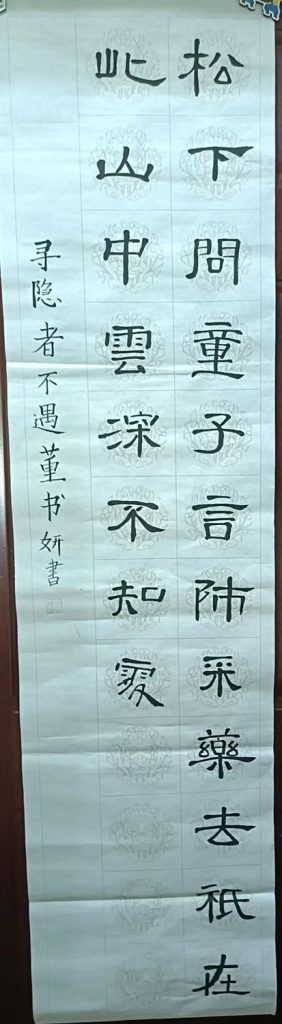 松下問童子言師采藥去祇在
此山中雲深不知處
寻隐者不遇董书妍書